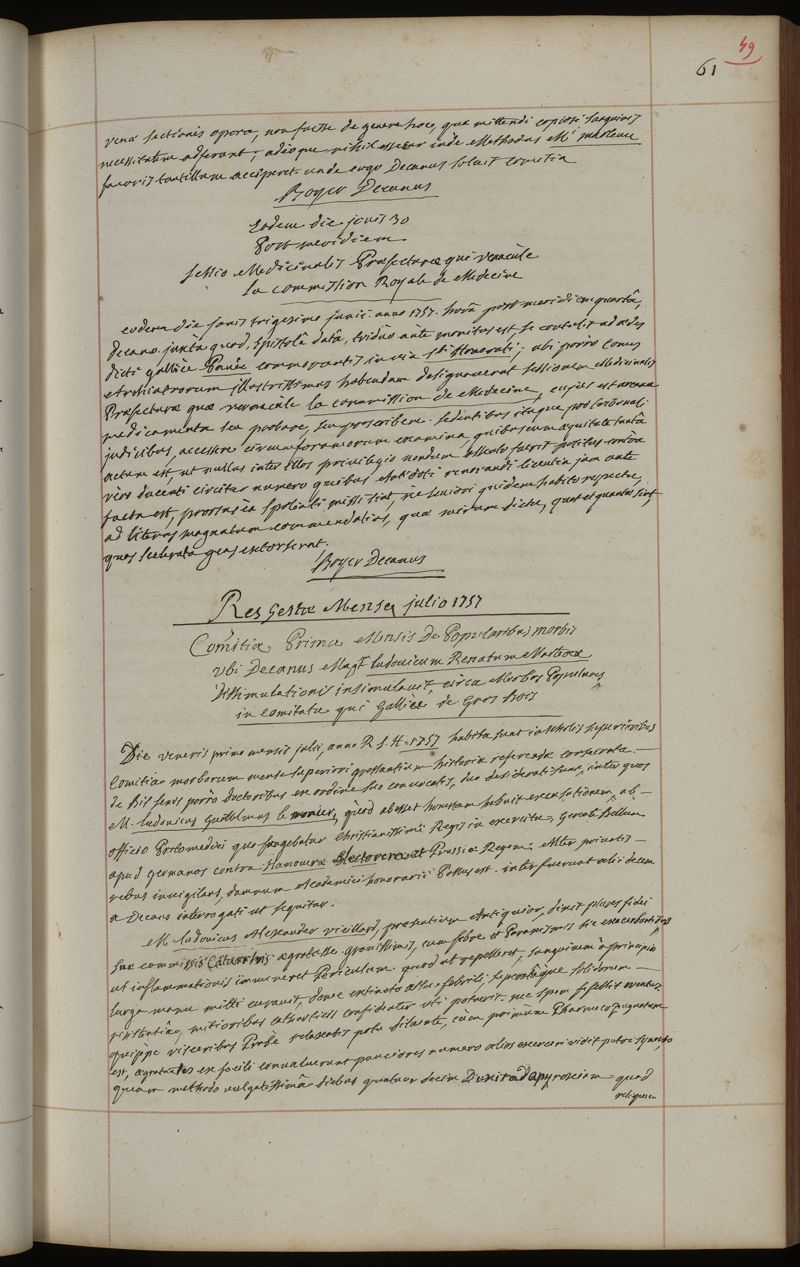 49
61
venæ sectionis opera, non fuisse de genere hocce, quæ mittendi copiosi sanguinis
necessitatem adferant; adeoque nihil esset inde Methodus Mi
favoris tantillum acciperet. unde ergo Decanus solvit comitia
Boyer Decanus
Eodem die jovis 30
Post meridiem
Sessio Medicinalis Præfecturæ qui vernacule
la commission Royale de Medecine
eodem die jovis trigesimo junii anno 1757. horâ post meridiem quartâ,
Decano juxta quod, Epistolâ datâ, triduo ante monitus est se contulit ad ædes
dicti gallice commorantis in via Sti Honorati; ubi porro Comes
Archiatrorum illustrissimus habendam designaverat sessionem Medicinalis
Præfecturæ quæ vernacule la commission de Medecine, cujus est arcana
medicamenta seu probare, seu proscribere. Sedentibus itaque pro tribunali
judicibus, accessere circumforaneorum examina quibuscum æquitate tantâ
actum est, ut nullus inter illos privilegio nondum fuerit potitus
vero ducenti circiter numero quibus antidoti renovandi licentia jam ante
facta est, prorsus ea spoliati missi sint, ne seniori quidem habito respectu,
ad literas magnatum commendatias, quæ mirum dictu, quot et quantæ sint,
quas extorserat.
Boyer Decanus
Res Gestæ Mense julio 1757
Comitia Prima Mensis De Popularibus morbis
ubi Decanus Magr ludovicum Renatum
Dissimulationis insimulavit, circa Morbos Populares
in Comitatu qui Gallice de Gros Bois
Die veneris primo mensis julii, anno R. S. H. 1757 habita sunt in scholis superioribus
Comitia morborum mense superiori grassantium historiæ referendæ consecrata.
de his senos porro doctoribus ex ordine suo convocatis, duo desiderati sunt, inter quos
M. ludovicus Guillelmus le monier, quod abesset honestam habuit excusationem, ab
officio Protomedici quo fungebatur Christianissimi Regis in exercitu, Gerente Bellum
apud germanos contra Hanoveræ Electorem et Prussiæ Regem. Alter privatis
rebus invigilans, damnum Academici honorarii est. interfuerunt alii decem
a Decano interrogati ut sequitur.
M. ludovicus Alexander vieillard, præsentium Antiquior, dixit plures fidei
suæ commissos Catarrhis ægrotasse gravissimis, cum febre et Paroxismis sic exacerbantibus
ut inflammationis immineret Periculum quod ut repelleret, sanguinem a principio
larga manu mitti curavit, donec extincto æstu febrili, solidorum
renitentia, mitioribus catharticis confidenter uti potuerit. nec spem fefellit eventus
quippe visceribus Probe relaxatis potu diluente, cum primum Pharmaco
est, ægrotantes ex facili convaluerunt pauciores numero alios exerceri vidit putri synocho
quam methodo vulgatissimâ diebus quatuor decim Duxit ad apyrexiam quod